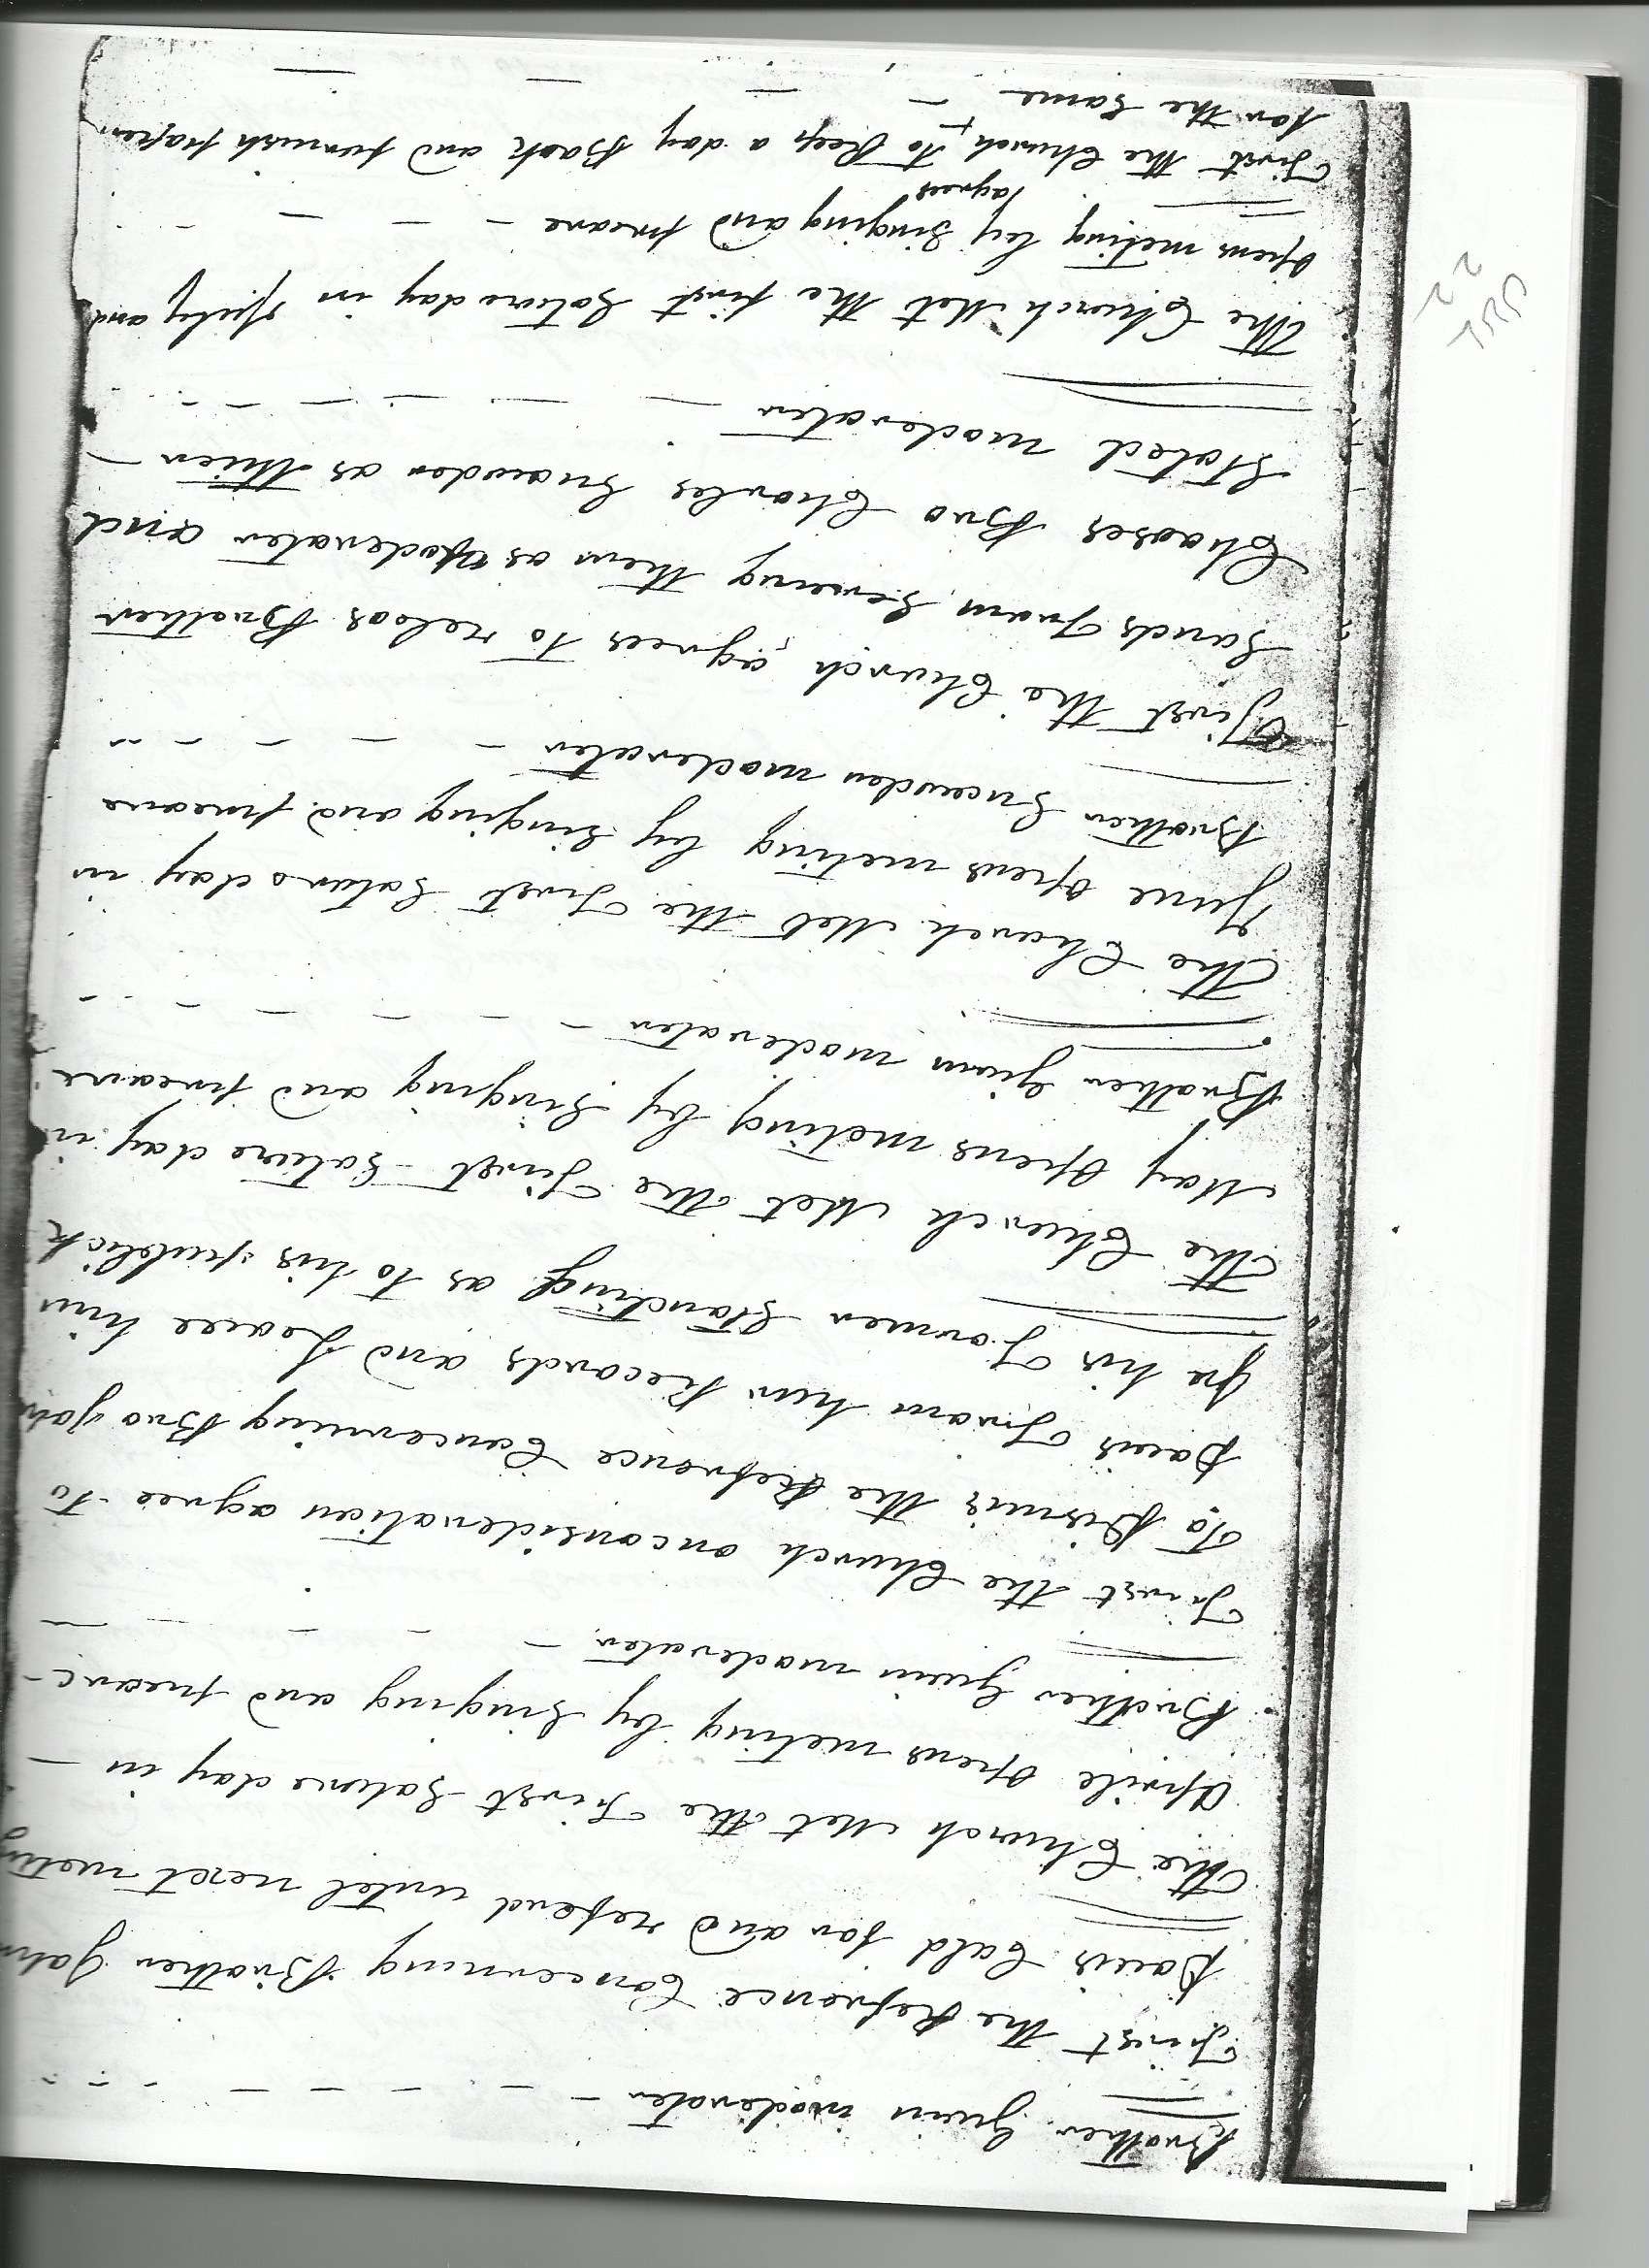 Brother Guin moderater
First the Refrence Concerning Brother John
Davis Cald for and refered untel next meting
The Church Met the First Saturday in
Aprile Opens meting by Singing and preare
Brother Guin moderater
First the Church onconsideration agree to
To Dismis the Refrence Concerning Bro John
Davis From her Records and Leave him
In his Former Standing as to his publick
The Church Met the First Saturday in
May Opens meting by Singing and preare
Brother Guin moderater
The Church Met the First Saturday in
June Opens meting by Singing and preare
Brother Snowden moderater
First the Church agrees to relees Brother
Sands From Serving them as Moderater and
Chooses Bro Charles Snowden as thier
Stated moderater
The Church Met the first Saturday in July and
Opens meting by Singing and preare
agrees
First the Church to Keep a day Book and furnish paper
for the Same
22